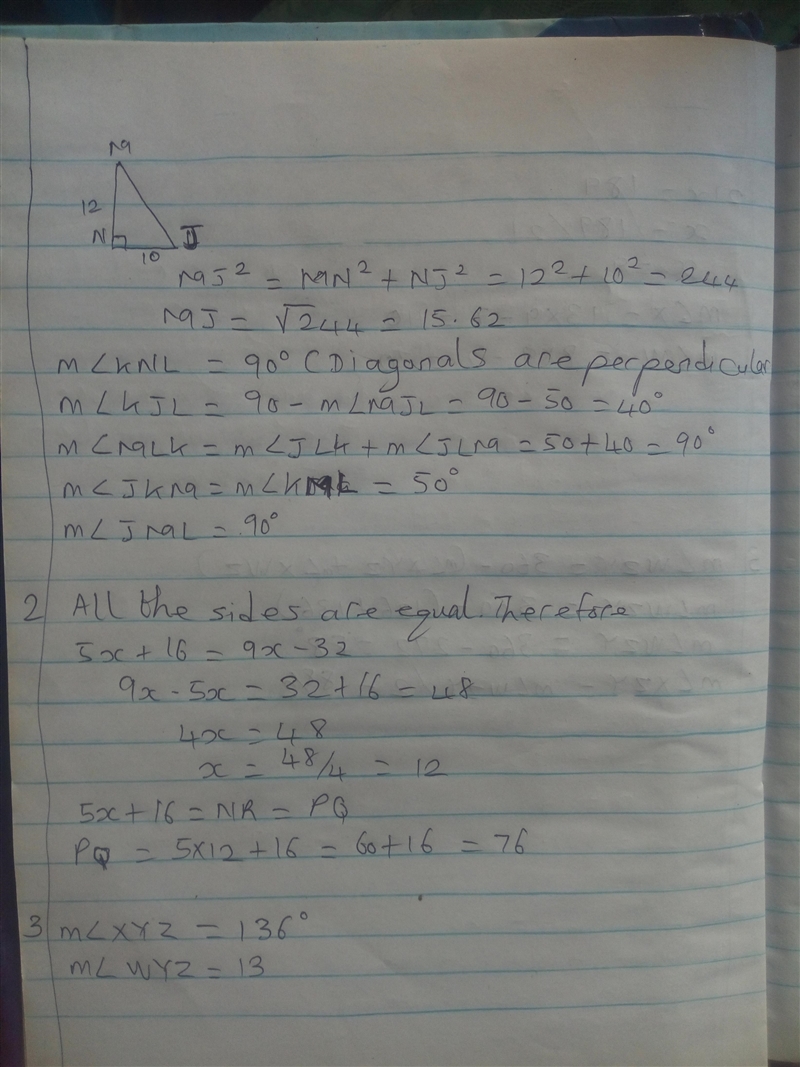 M
12
N
J
10
MJ² = MN² + NJ² = 12² + 10² = 244
MJ = √244 = 15.62
m∠KNL = 90° (Diagonals are perpendicular
m∠KJL = 90 - m∠MJL = 90 - 50 = 40°
m∠MLK = m∠JLK + m∠JLM = 50 + 40 = 90°
m∠JKM = m∠KML = 50°
m∠JML = 90°
2 All the sides are equal. Therefore
5x + 16 = 9x - 32
9x - 5x = 32 + 16 = 48
4x = 48
x = 48/4 = 12
5x + 16 = NR = PQ
PQ = 5×12 + 16 = 60 + 16 = 76
3 m∠XYZ = 136°
m∠WYZ = 13